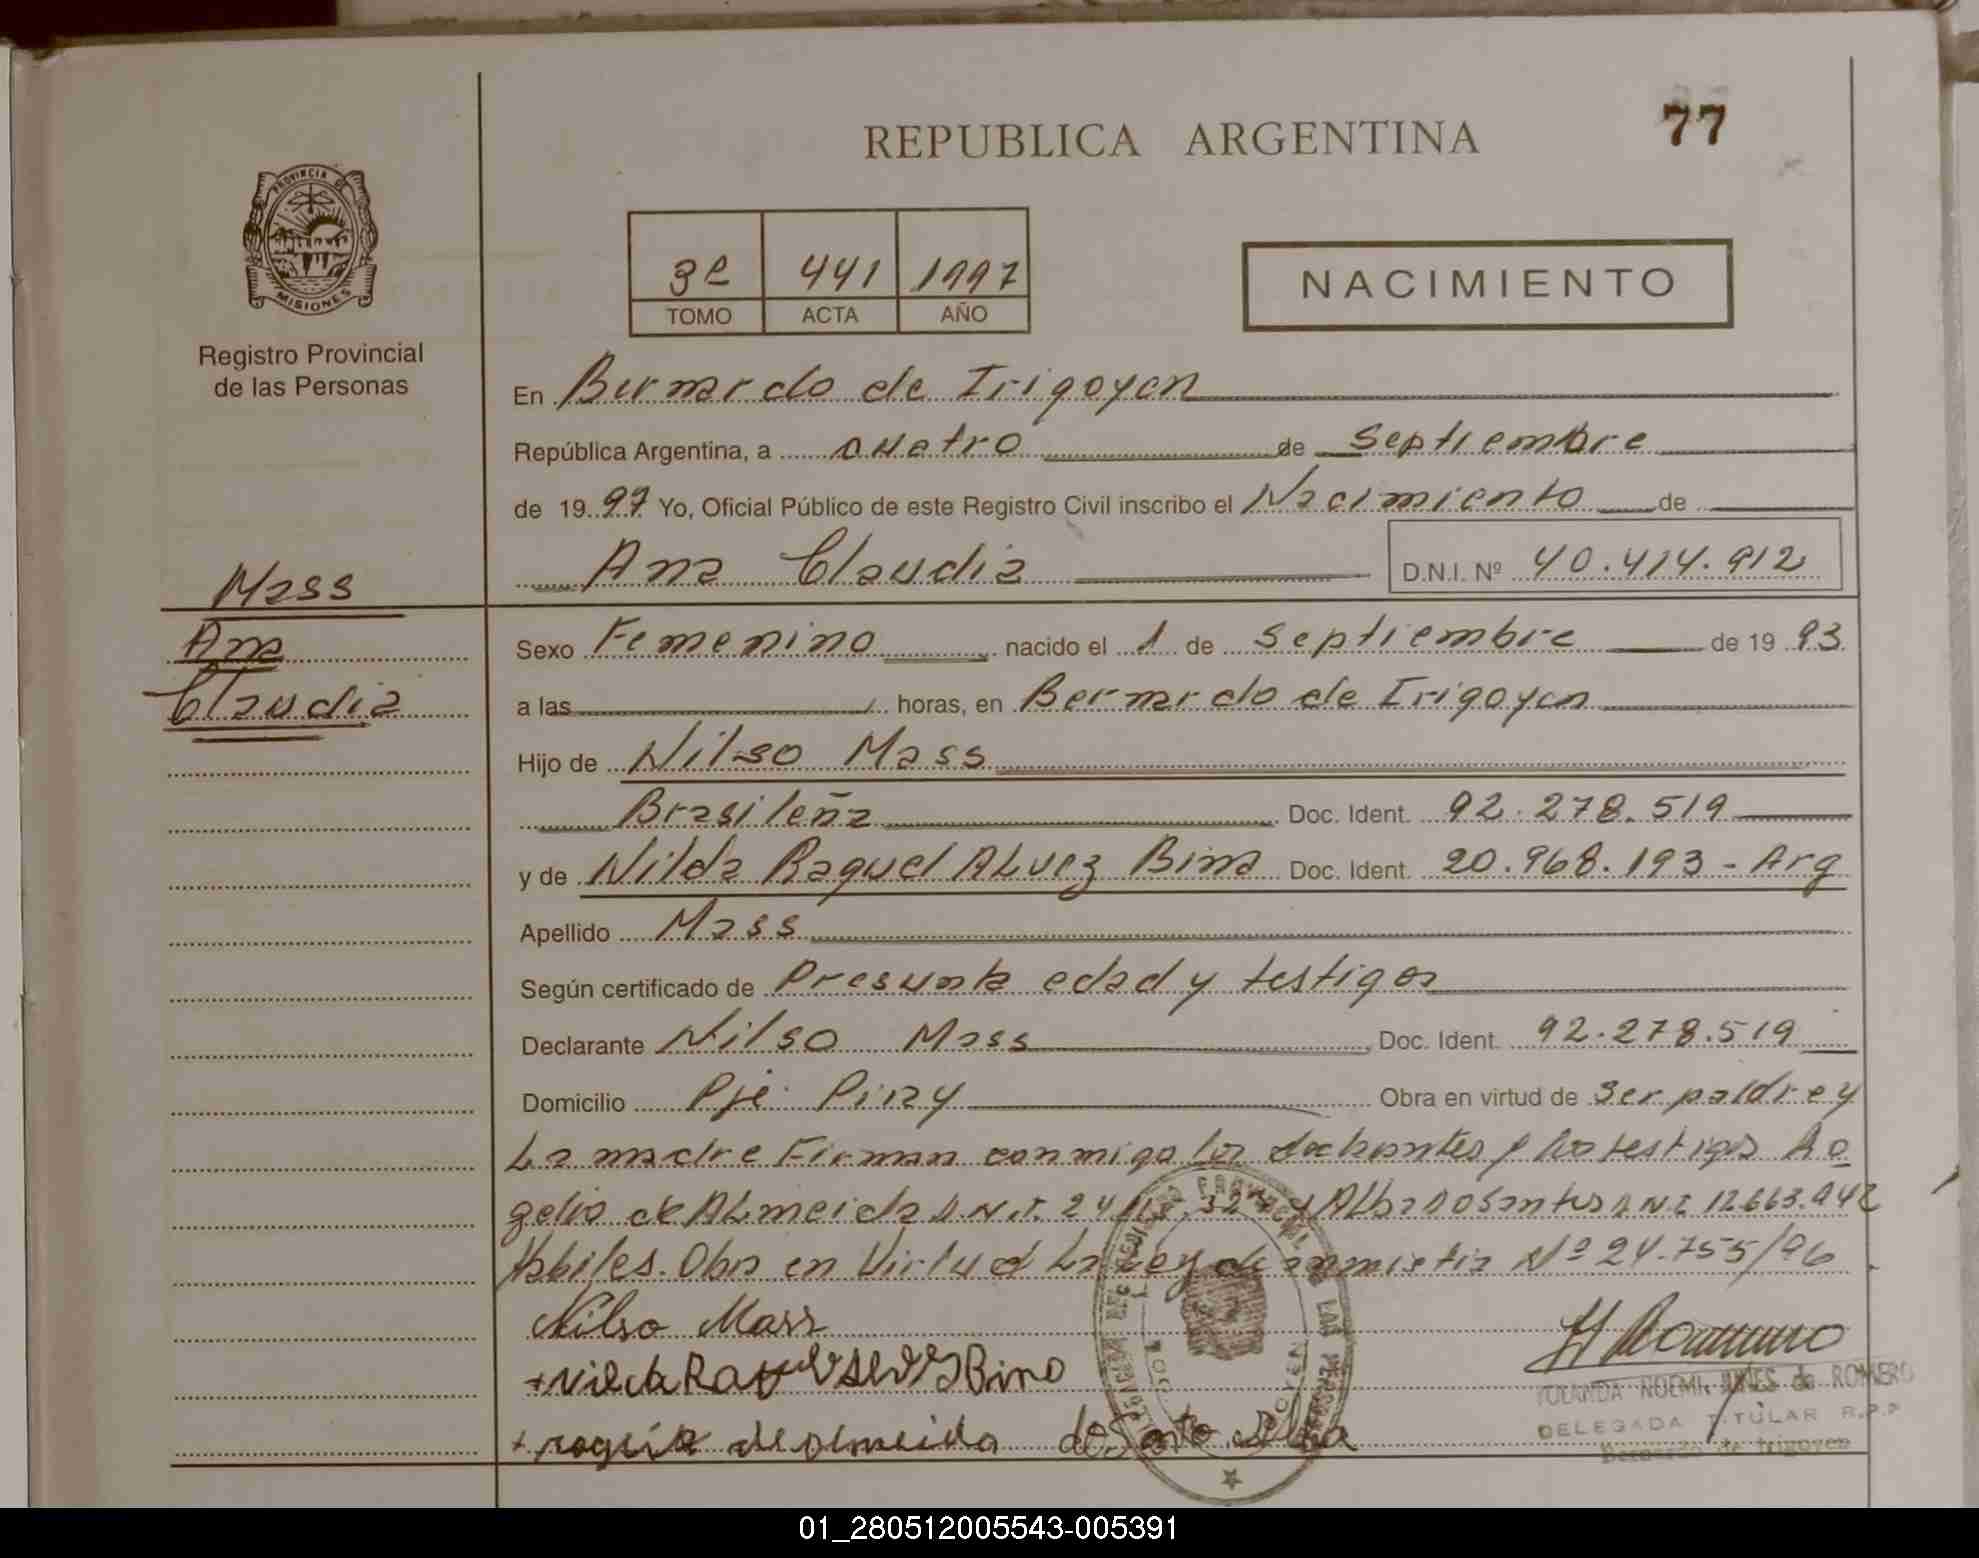 77
REPUBLICA ARGENTINA
PROVINCIA DE
MISIONES
Registro Provincial
de las Personas
3º 441 1997
TOMO ACTA AÑO
NACIMIENTO
En Bernardo de Irigoyen
República Argentina, a cuatro de Septiembre
de 1997 Yo, Oficial Público de este Registro Civil inscribo el Nacimiento de
Ana Claudia D.N.I. Nº 40.414.912
Mass
Ana
Claudia
Sexo Femenino nacido el 1 de Septiembre de 1993
a las horas, en Bernardo de Irigoyen
Hijo de Nilso Mass
Brasileña Doc. Ident. 92.278.519
y de Nilda Raquel Alvez Bino Doc. Ident. 20.968.193 - Arg
Apellido Mass
Según certificado de Presunta edad y testigos
Declarante Nilso Mass Doc. Ident. 92.278.519
Domicilio Pje Piray Obra en virtud de Ser paldre y
La madre Firman conmigo los testigos Ro
gelio de Almeida D.N.I. 24 y Alba Dosantos D.N.I 12.663.942
Habiles. Obra en Virtud La Ley de amnistia Nº 24.755/96
Nilso Mass
+ Nilda Raquel Alvez Bino
+ rogelio de almeida do Santo Alba
YOLANDA NOEMI de ROMERO
DELEGADA TITULAR R.P.P
Bernardo de Irigoyen
01_280512005543-005391